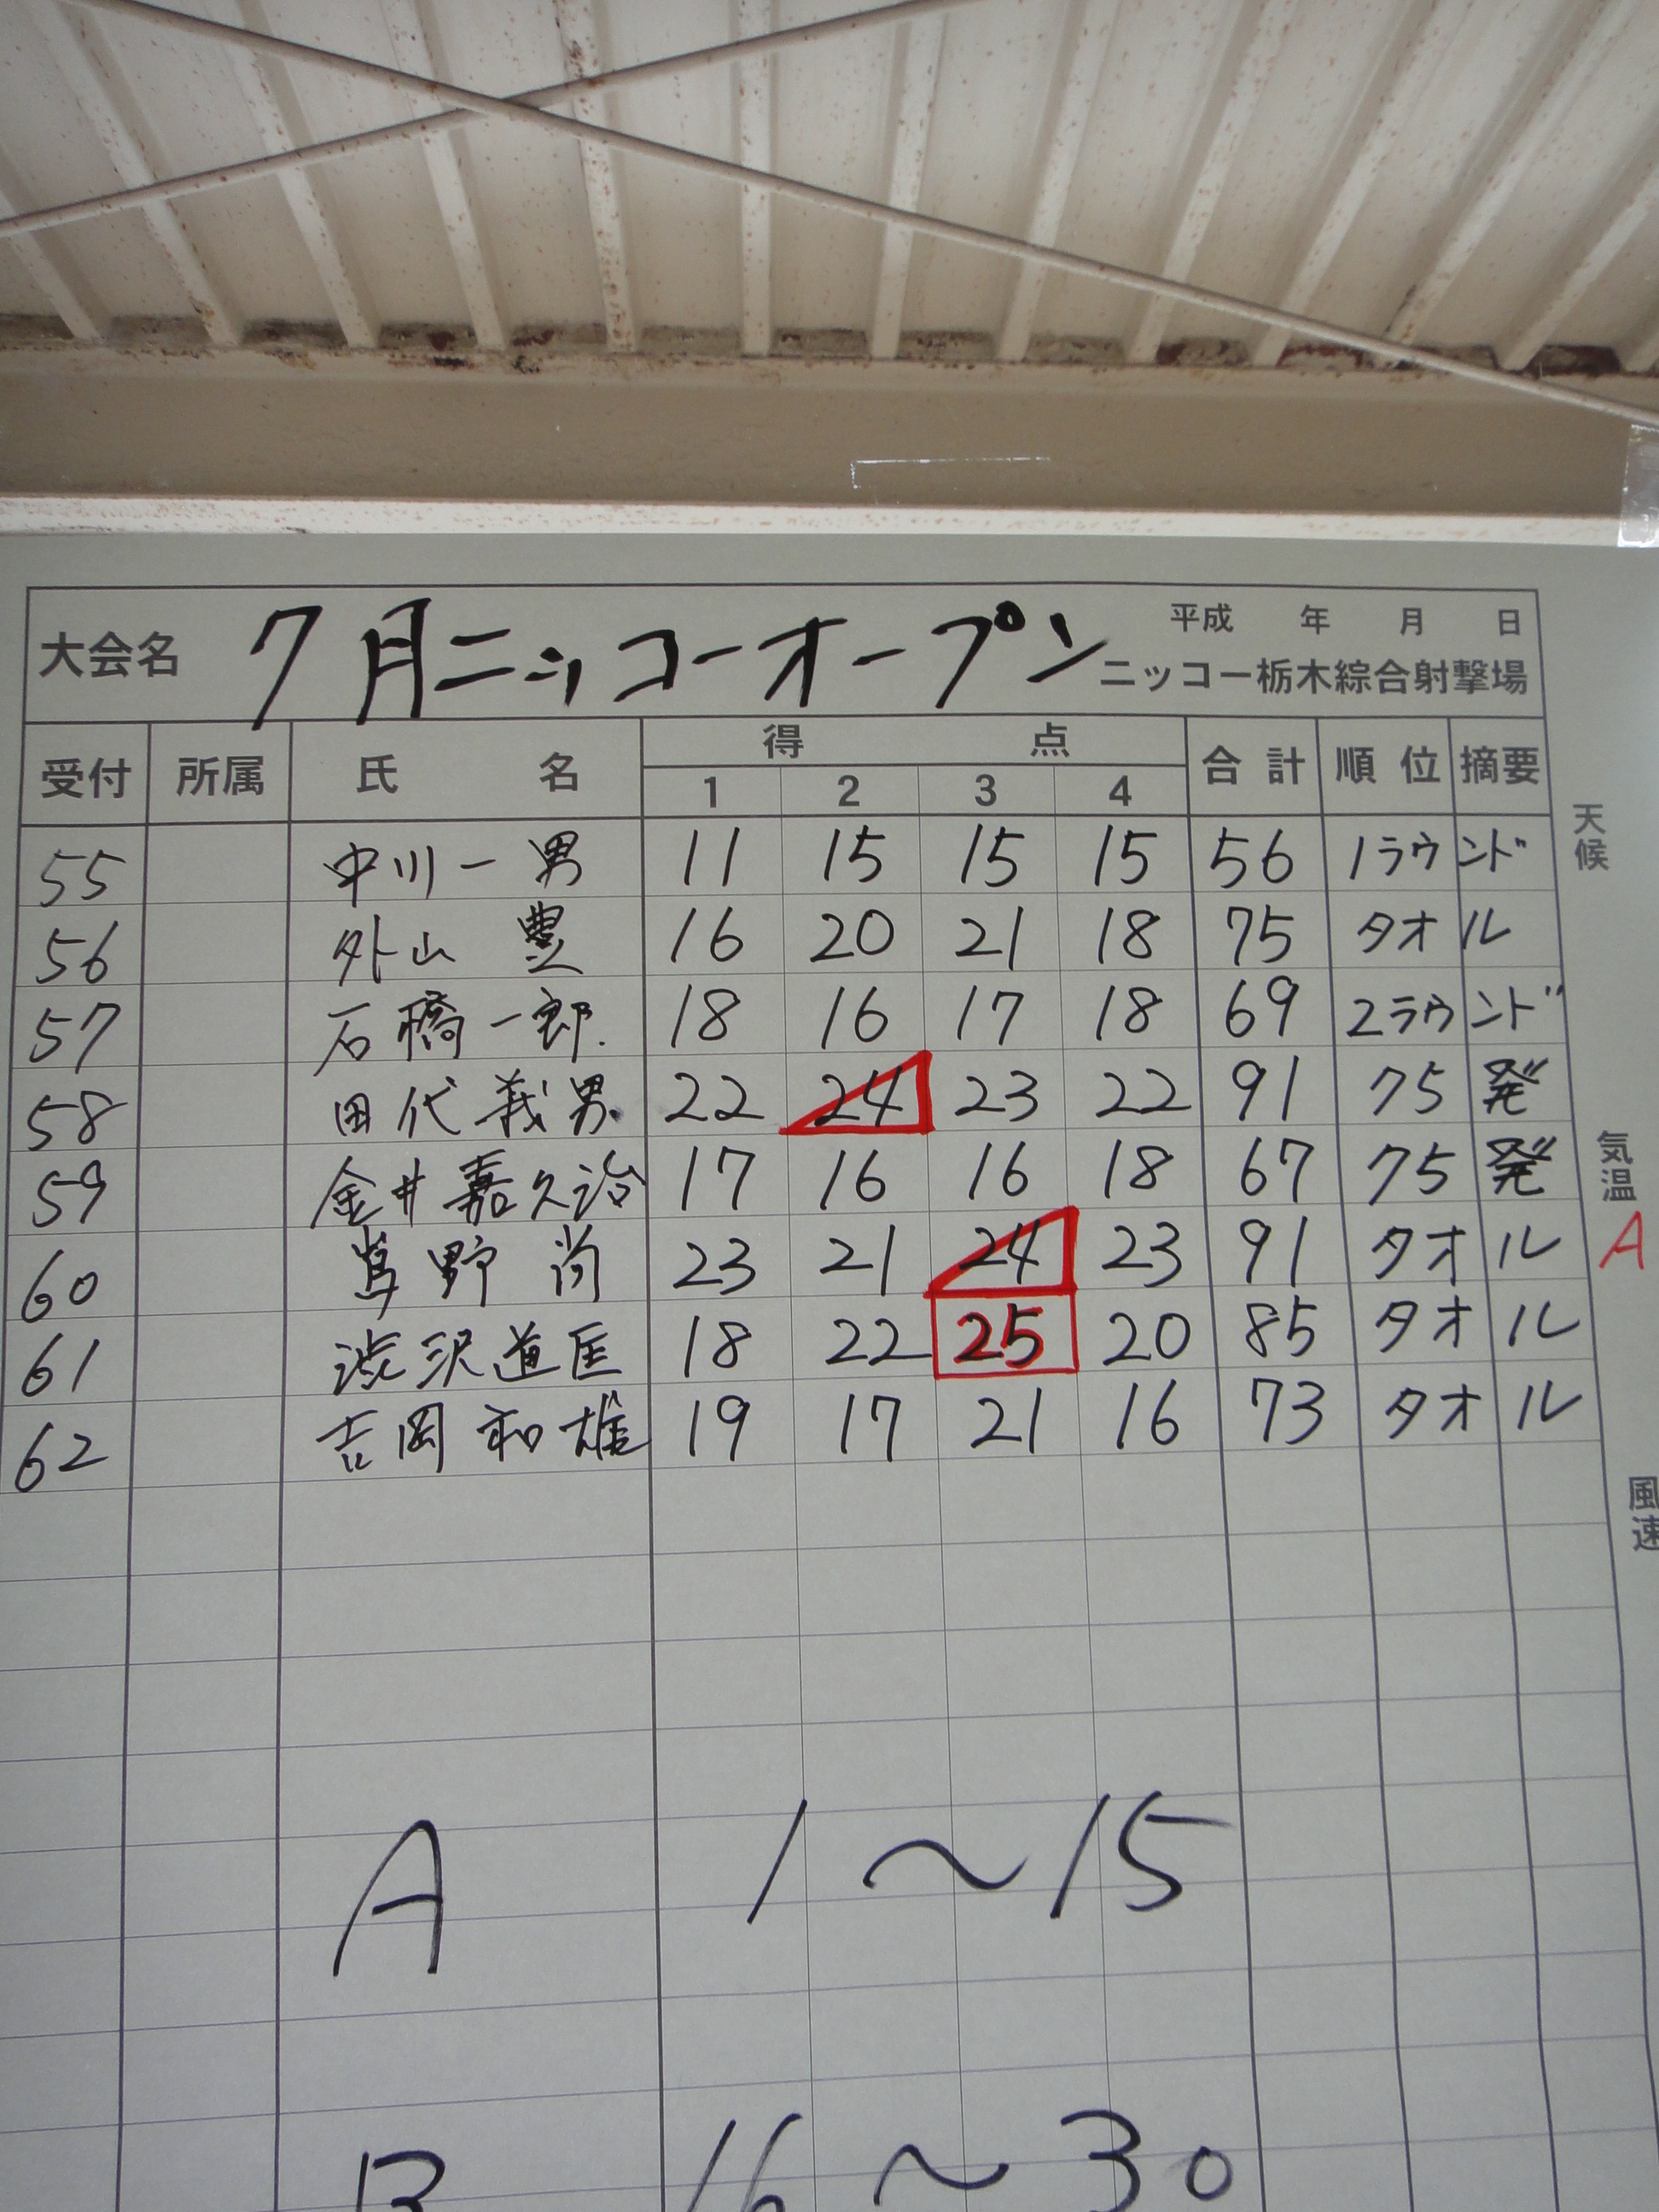 大会名 7月ニッコーオープン 平成 年 月 日
ニッコー栃木綜合射撃場
受付 所属 氏名 得点 合計 順位 摘要
1 2 3 4
55 中川一男 11 15 15 15 56 1ラウンド
56 外山 豊 16 20 21 18 75 タオル
57 石橋一郎 18 16 17 18 69 2ラウンド
58 田代義男 22 24 23 22 91 75発
59 金井嘉久治 17 16 16 18 67 75発
60 野 尚 23 21 24 23 91 タオル
61 渋沢道匡 18 22 25 20 85 タオル
62 吉岡和雄 19 17 21 16 73 タオル
A 1～15
B 16～30
天候
気温
A
風速